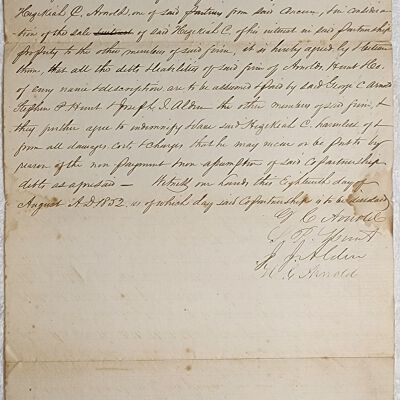 Hezekiah C. Arnold, one of said partners from said concern, & in considera-
tion of the sale of said Hezekiah C, of his interest in said partnership
property to the other members of said firm, it is hereby agreed by & between
them, that all the debts & liabilities of said firm of Arnolds, Hunt & Co.
of every name & description are to be assumed & paid by said George C Arnold
Stephen P. Hunt & Joseph J. Alden the other members of said firm, &
they further agree to indemnify & save said Hezekiah C, harmless of &
from all damages, costs & charges that he may incur or be put to by
reason of the non payment & non assumption of said Copartnership
debts as aforesaid — Witness our hands this Eighteenth day of
August A.D 1852, as of which day said Copartnership is to be dissolved
G C Arnold
S. P. Hunt
J. J. Alden
H. C Arnold